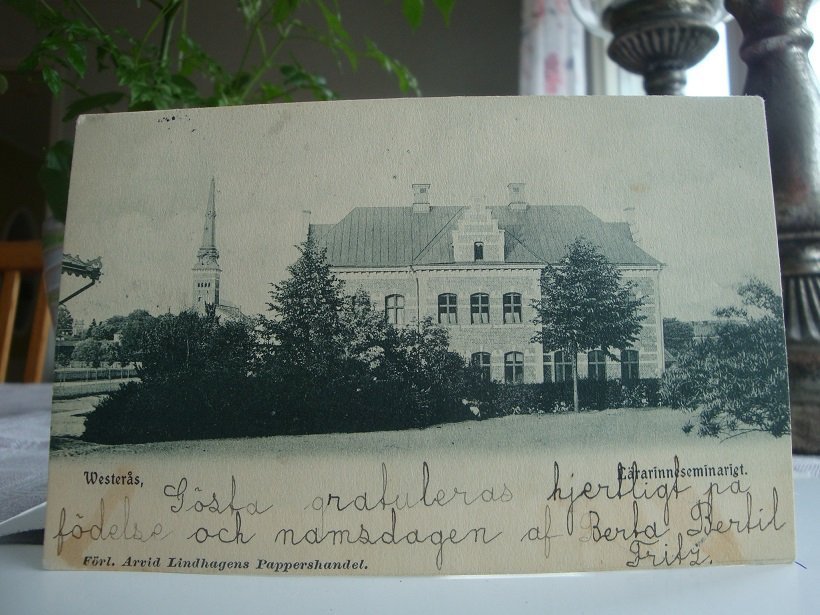 Westerås,
Lärarinneseminariet.
Gösta gratuleras hjertligt på
födelse och namsdagen af Berta Bertil
Fritz.
Förl. Arvid Lindhagens Pappershandel.